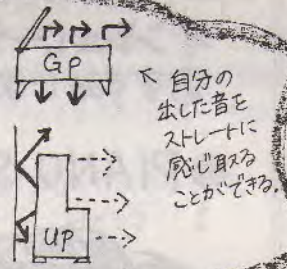 GP
自分の
出した音を
ストレートに
感じ取る
ことができる.
UP